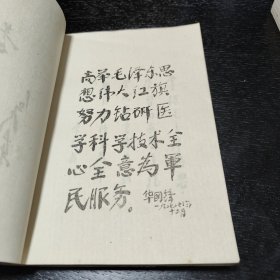 高举毛泽东思
想伟大红旗
努力钻研医
学科学技术全
心全意为军
民服务。
华国锋